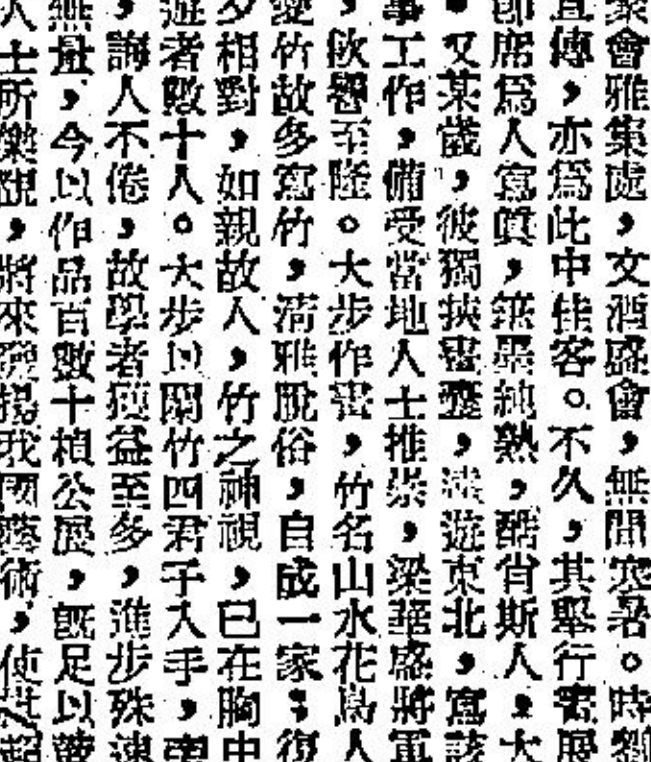 會雅集處，文酒盛會，無間寒暑。時
傳，亦爲此中佳客。不久，其舉行畫展
卽席爲人寫眞，無墨純熟，酷肖斯人，大
又某歲，彼獨挾畫壁，遊東北，寫該
事工作，備受當地人士推崇，梁華盛將軍
，飲譽至隆。大步作畫，竹名山水花鳥人
愛竹故多寫竹，清雅脫俗，自成一家；復
夕相對，如親故人，竹之神視，已在胸中
遊者數十人。大步以蘭竹四君子入手，
，誨人不倦，故學者獲益至多，進步殊速
無量，今以作品百數十楨公展，旣足以
人士所樂覩，將來發揚我國藝術，使